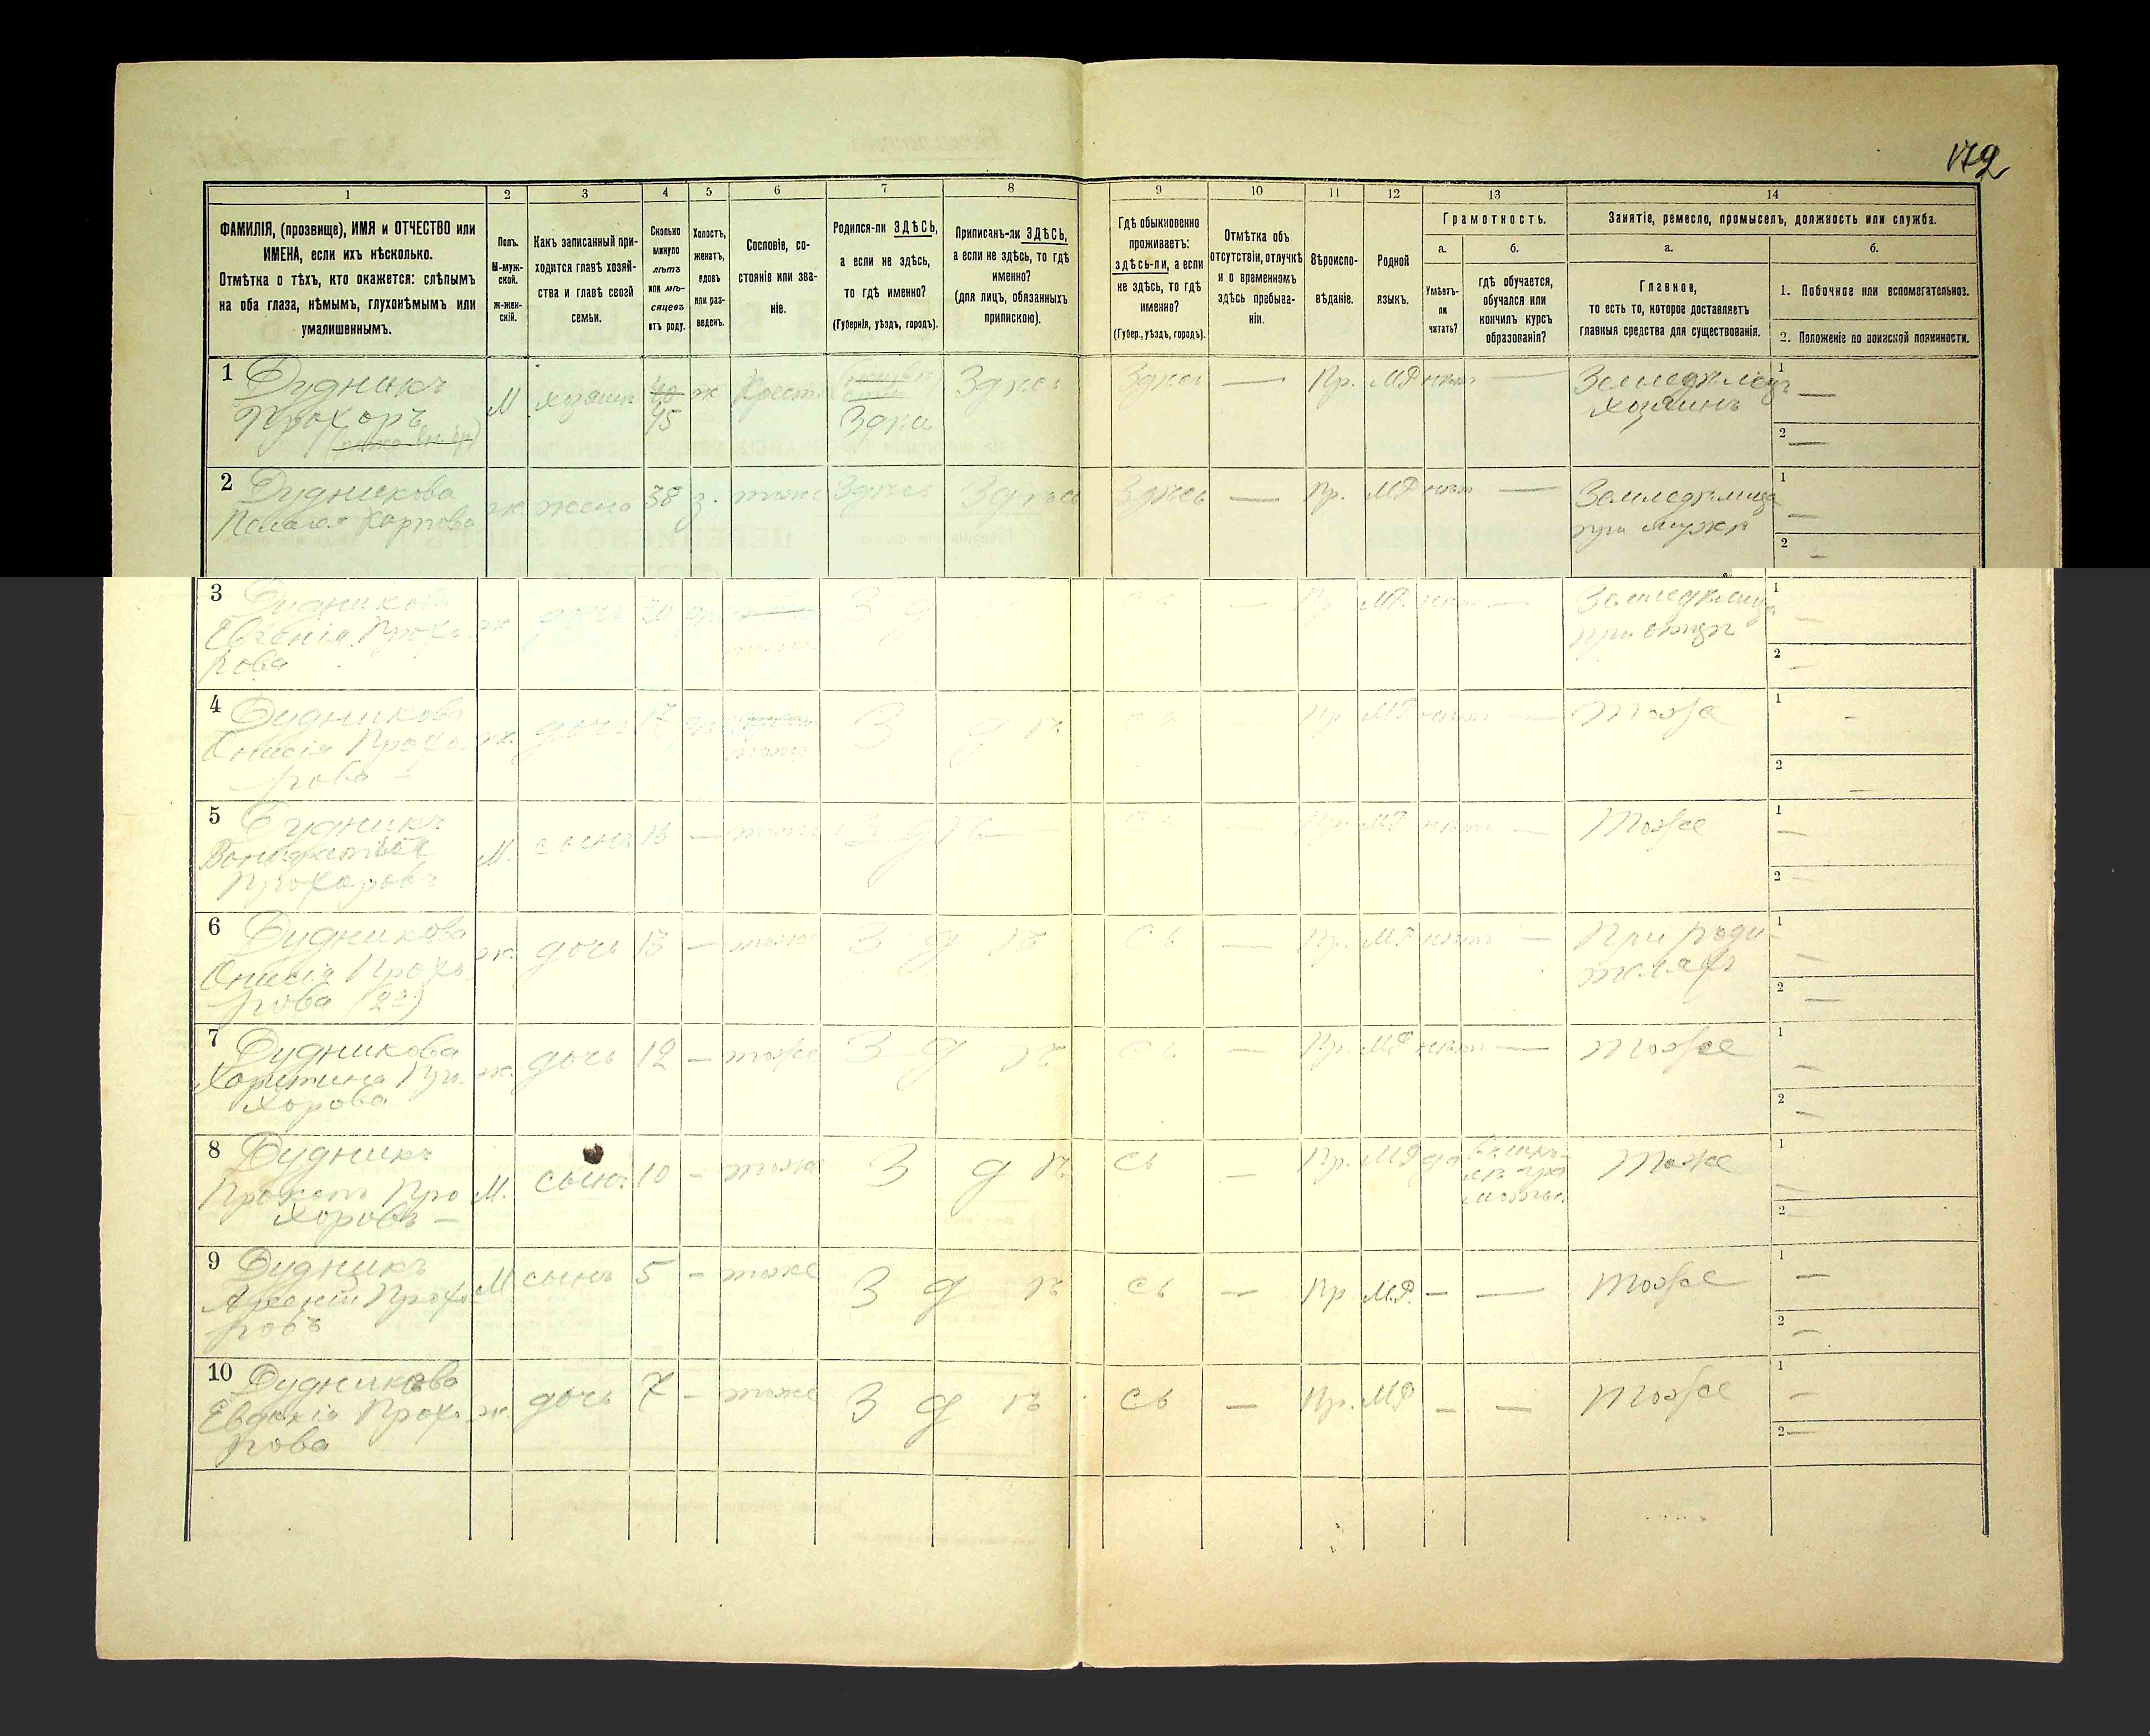 179
1
2
3
4
5
6
7
8
9
10
11
12
13
14
ФАМИЛІЯ, (прозвище), ИМЯ и ОТЧЕСТВО или
ИМЕНА, если ихъ нѣсколько.
Отмѣтка о тѣхъ, кто окажется: слѣпымъ
на оба глаза, нѣмымъ, глухонѣмымъ или
умалишеннымъ.
Полъ.
М-муж-
ской.
ж-жен-
скій.
Какъ записанный при-
ходится главѣ хозяй-
ства и главѣ своей
семьи.
Сколько
минуло
лѣтъ
или мѣ-
сяцевъ
отъ роду.
Холостъ,
женатъ,
вдовъ
или раз-
веденъ.
Сословіе, со-
стояніе или зва-
ніе.
Родился-ли ЗДѢСЬ,
а если не здѣсь,
то гдѣ именно?
(Губернія, уѣздъ, городъ).
Приписанъ-ли ЗДѢСЬ,
а если не здѣсь, то гдѣ
именно?
(для лицъ, обязанныхъ
припискою).
Гдѣ обыкновенно
проживаетъ:
здѣсь-ли, а если
не здѣсь, то гдѣ
именно?
(Губер., уѣздъ, городъ).
Отмѣтка объ
отсутствіи, отлучкѣ
и о временномъ
здѣсь пребыва-
ніи.
Вѣроиспо-
вѣданіе.
Родной
языкъ.
Грамотность.
а.
Умѣетъ-
ли
читать?
б.
гдѣ обучается,
обучался или
кончилъ курсъ
образованія?
Занятіе, ремесло, промыселъ, должность или служба.
а.
Главное,
то есть то, которое доставляетъ
главныя средства для существованія.
б.
1. Побочное или вспомогательное.
2. Положеніе по воинской повинности.
1 Дудникъ
Прохоръ
М хозяинъ 40 ж Крест
45
Здѣсь Здѣсь Здѣсь — Пр. МР нѣтъ — Земледѣлецъ
хозяинъ
1 —
2 —
2 Дудникова
Пелагея Карпова
ж жена 38 з. тоже Здѣсь Здѣсь Здѣсь — Пр. МР нѣтъ — Земледѣлица
при мужѣ
1 —
2 —
3 Дудникова
Евгенія Прохо-
рова
ж дочь 20 тоже З д сь — Пр. МР. нѣтъ — Земледѣлица
при отцѣ
1 —
2 —
4 Дудникова
Онисія Прохо-
рова —
ж. дочь 17 тоже З д ѣ сь — Пр МР нѣтъ — Тоже
1 —
2 —
5 Дудникъ
Прохоровъ
М. сынъ 16 — тоже З д ѣ сь — Пр. МР нѣтъ — Тоже
1 —
2 —
6 Дудникова
Онисія Прохо-
рова (2я)
ж. дочь 13 — тоже З д ѣ сь — Пр. МР нѣтъ — При роди-
теляхъ
1 —
2 —
7 Дудникова
Харитина Про-
хорова
ж. дочь 12 — тоже З д ѣ сь — Пр. МР нѣтъ — Тоже
1 —
2 —
8 Дудникъ
Прокопъ Про
хоровъ —
М. сынъ 10 — тоже З д ѣ сь — Пр. МР да
Тоже
1 —
2 —
9 Дудникъ
Арсеній Прохо-
ровъ
М сынъ 5 — тоже З д ѣ сь — Пр М.Р. — — Тоже
1 —
2 —
10 Дудникова
Евдокія Прохо-
рова
ж. дочь 7 — тоже З д ѣ сь — Пр. МР — — Тоже
1 —
2 —